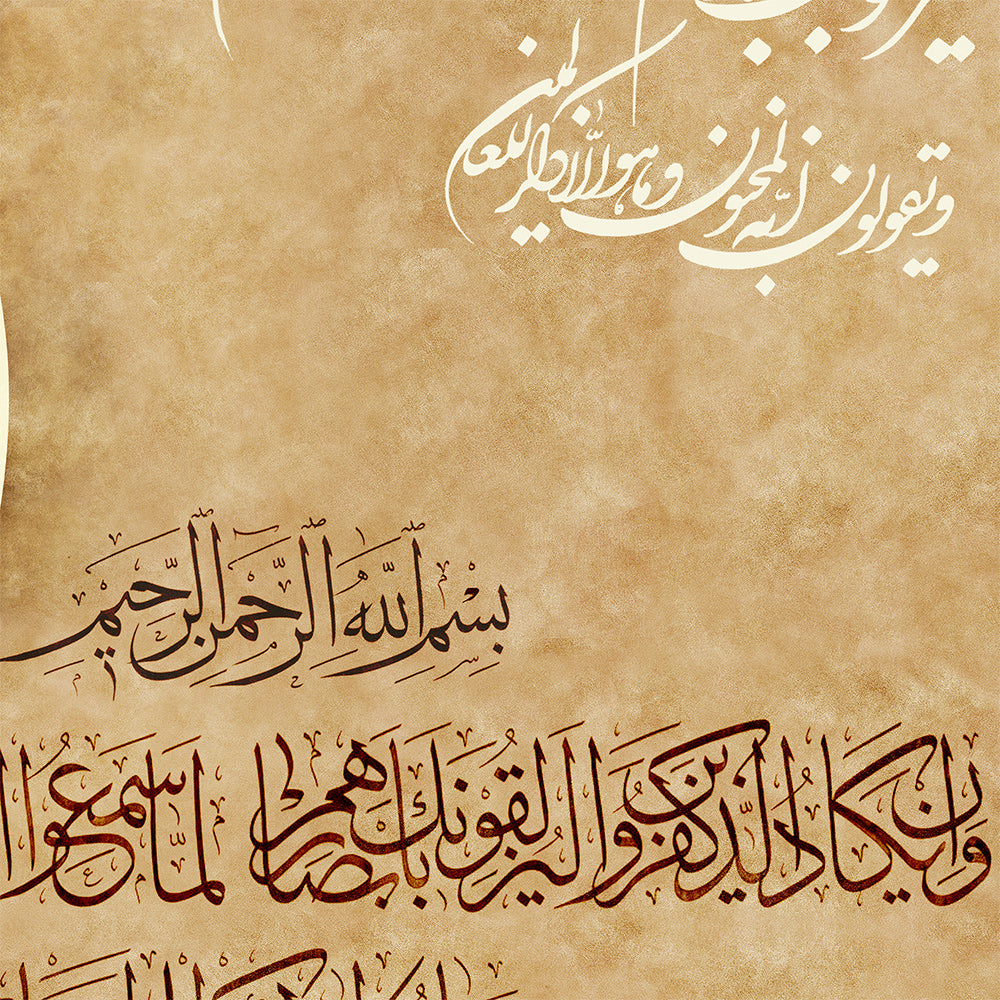 ويقولون إنه لمجنون وما هو إلا ذكر للعالمين
بِسْمِ اللَّهِ الرَّحْمَنِ الرَّحِيمِ
وَإِن يَكَادُ الَّذِينَ كَفَرُوا لَيُزْلِقُونَكَ بِأَبْصَارِهِمْ لَمَّا سَمِعُوا